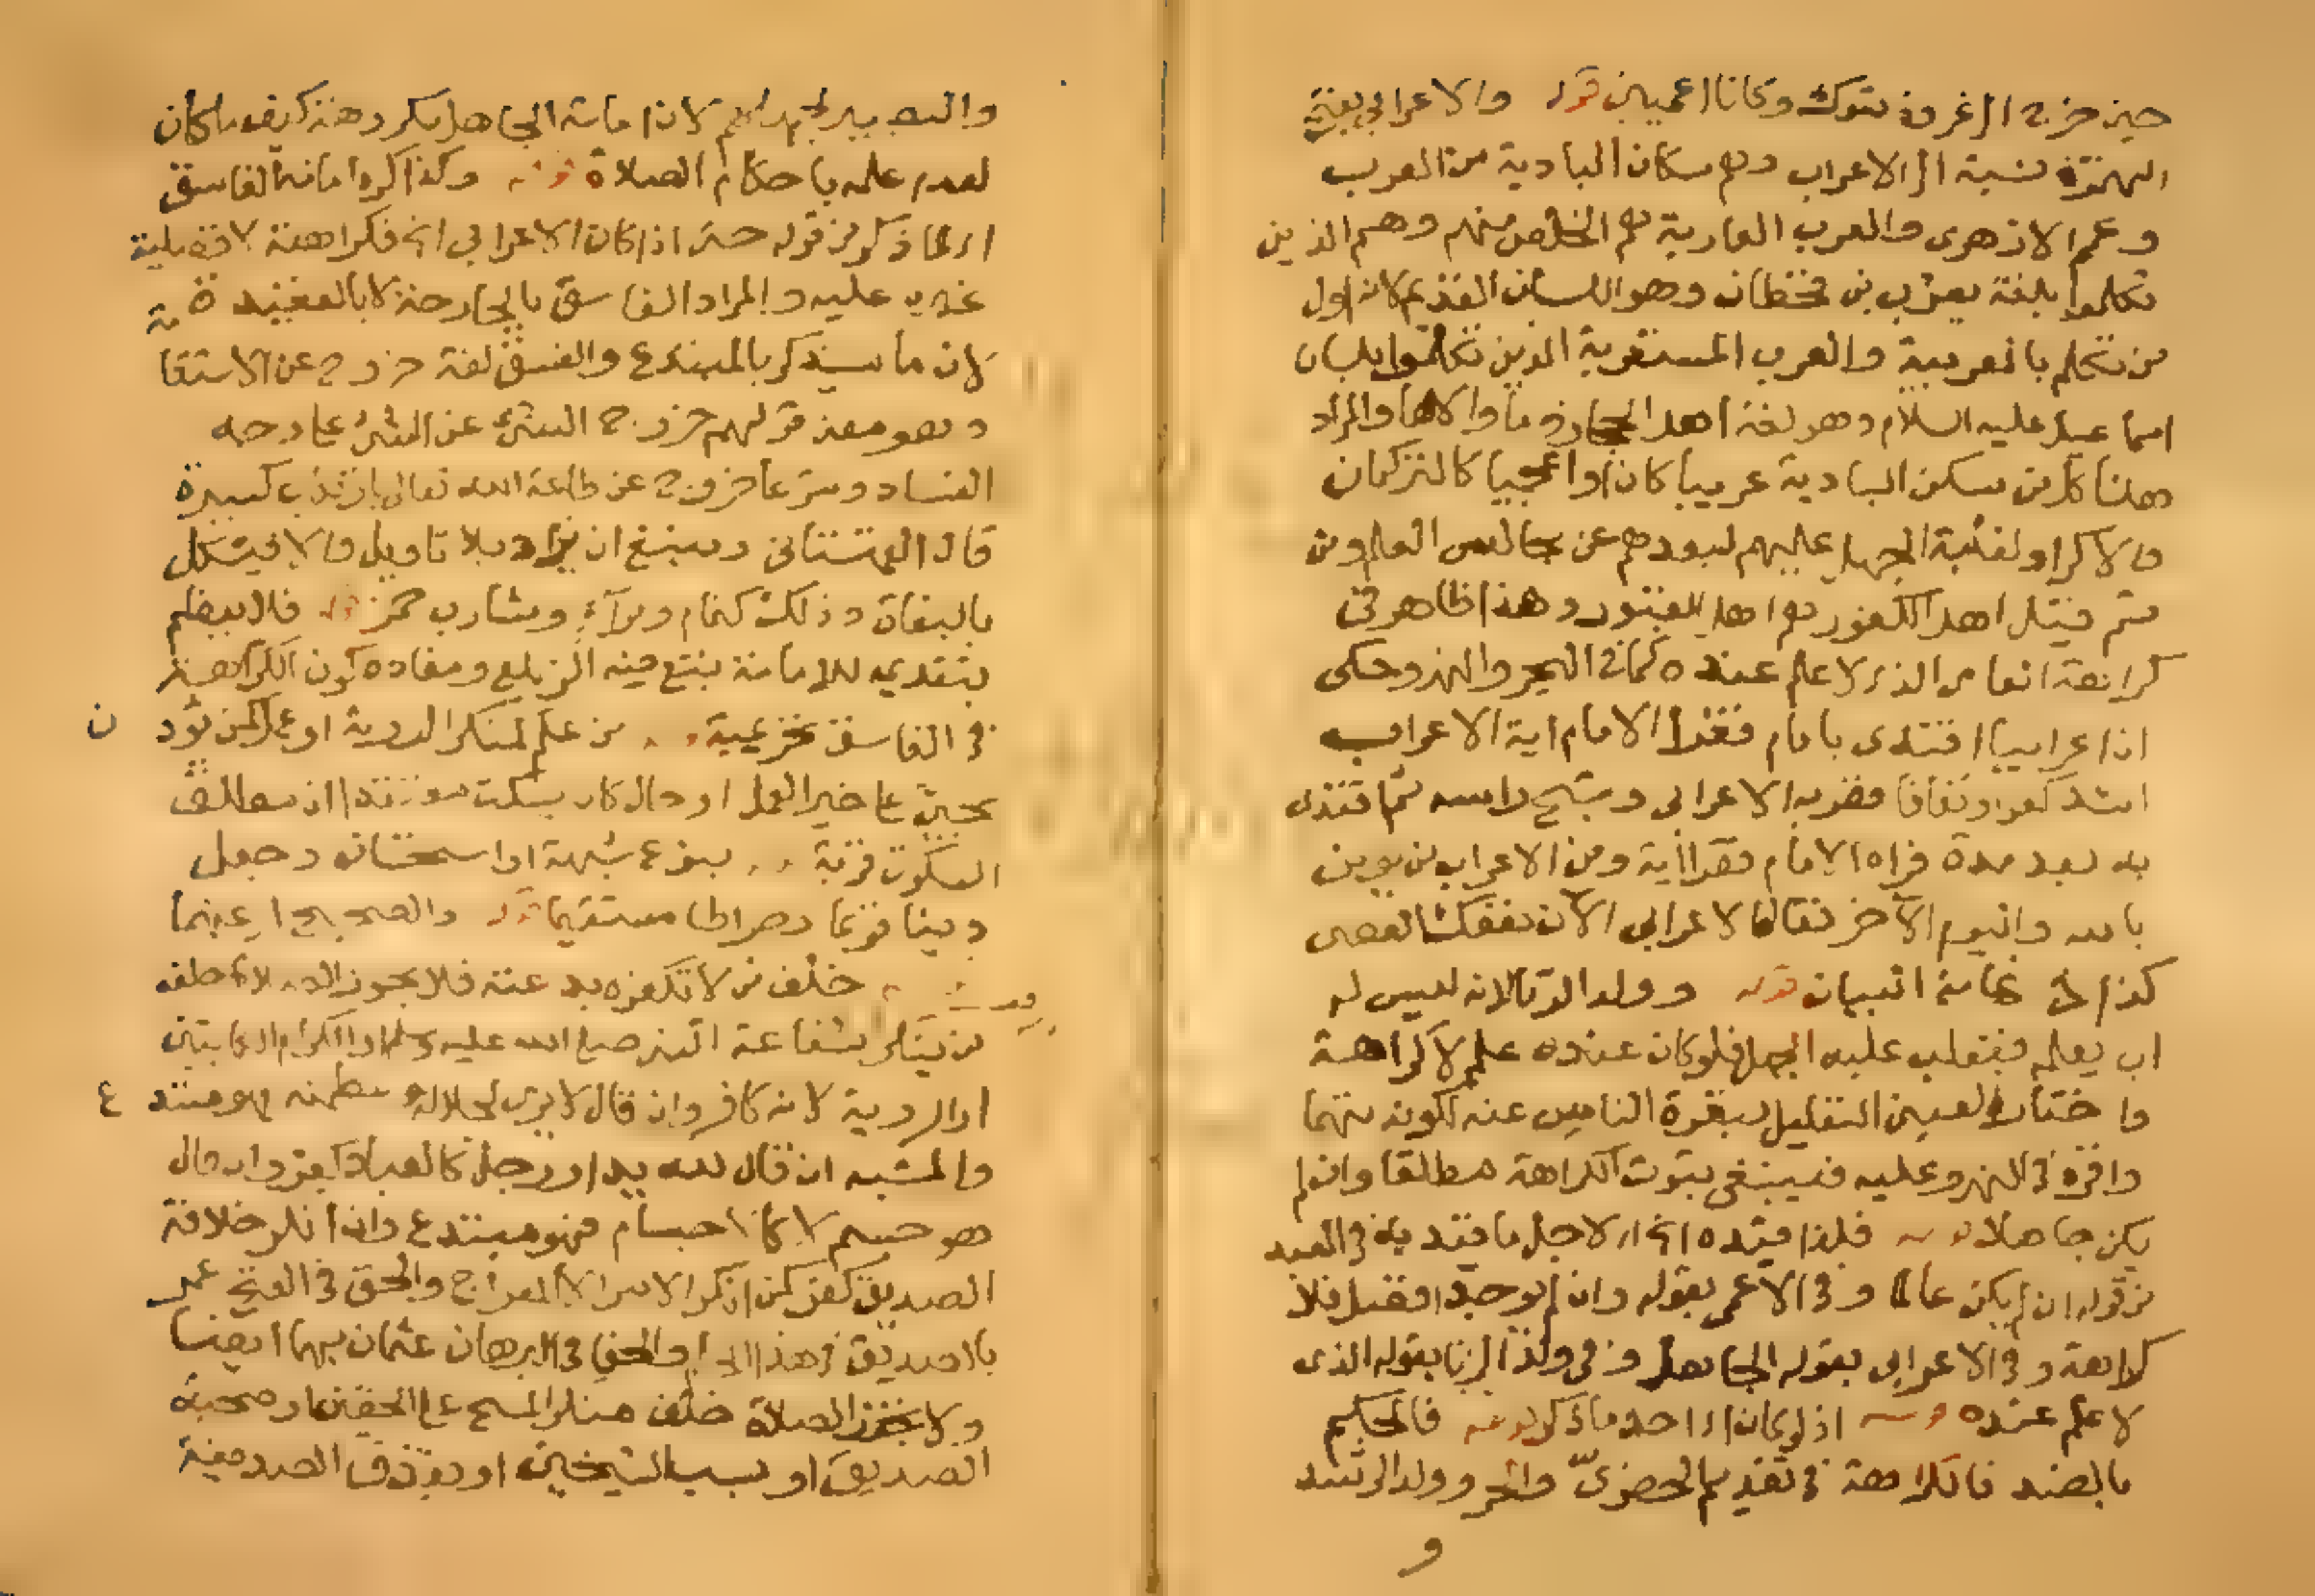 حين خرج الى غزوة تبوك وكانا اعميين قوله والاعرابي بفتح
الهمزة نسبة الى الاعراب وهم سكان البادية من العرب
وعم الازهرى والعرب العاربة هم الخلص منهم وهم الذين
تكلموا بلغة يعرب بن قحطان وهو اللسان القديم لانه اول
من تكلم بالعربية والعرب المستعربة الذين تكلموا بلسان
اسماعيل عليه السلام وهو لغة اهل الحجاز وما والاها والمراد
هنا كل من سكن البادية عربيا كان او اعجميا كالتركمان
والاكراد لغلبة الجهل عليهم لبعدهم عن مجالس العلم ومن
ثم قيل اهل الكفور هم اهل القبور وهذا ظاهر في
كراهة العامي الذي لا علم عنده كما في البحر والنهر وحكى
ان اعرابيا اقتدى بامام فقرا الامام اية الاعراب
اشد كفرا ونفاقا فضربه الاعرابي وشج راسه ثم اقتدى
به بعد مدة فراه الامام فقرا اية ومن الاعراب من يومن
بالله واليوم الآخر فقال الاعرابي الآن نفعك العصى
كذا في غاية البيان قوله وولد الزنا لانه ليس له
اب يعلمه فيغلب عليه الجهل فلو كان عنده علم لا كراهة
واختار العيني التعليل بنفرة الناس عنه لكونه متهما
واقره في النهر وعليه فينبغي ثبوت الكراهة مطلقا وان لم
يكن جاهلا قوله فلذا قيده اي لاجل ما قيد به في العبد
من قوله ان لم يكن عالما وفي الاعمى بقوله وان لم يوجد افضل فلا
كراهة وفي الاعرابي بقوله الجاهل وفي ولد الزنا بقوله الذى
لا علم عنده قوله اذ لو كان اي احد ما ذكر قوله فالحكم
بالضد فالكراهة في تقديم الحضريّ والحر وولد الرشد
و
والبصير لجهلهم لان امامة الجاهل مكروهة كيف ما كان
لعدم علمه باحكام الصلاة قوله وكذا كره امامة الفاسق
اي لما ذكر من قوله حتى اذا كان الاعرابي الخ فكراهته لافضلية
غيره عليه والمراد الفاسق بالجارحة لا بالعقيدة
لان ما سيذكر بالمبتدع والفسق لغة خروج عن الاستقامة
وهو معنى قولهم خروج الشئ عن الشئ على وجه
الفساد وشرعا خروج عن طاعة الله تعالى بارتكاب كبيرة
قال القهستاني وينبغي ان يزاد بلا تاويل والا فيشكل
بالبغاة وذلك كنمام ومرآء وشارب خمر قوله فلا يعظم
بتقديمه للامامة تبع فيه الزيلعي ومفاده كون الكراهة
في الفاسق تحريمية
السكوت قربة بنوع شبهة او استحسانه وجعل
دينا قويما وصراطا مستقيما قوله والصحيح
خلف من لا تكفره بدعته فلا يجوز الصلاة خلف
من ينكر شفاعة النبي صلى الله عليه وسلم او الكرام الكاتبين
او الروية لانه كافر وان قال لا يرى لجلاله وعظمته فهو مبتدع
والمشبه ان قال لله يد او رجل كالعباد كفر وان قال
هو جسم لا كالاجسام فهو مبتدع وان انكر خلافة
الصديق كفر كمن انكر الاسرا لا المعراج والحق في الفتح عمر
بالصديق في هذا والحق في البرهان عثمان بهما ايضا
ولا تجوز الصلاة خلف منكر المسح على الخفين او صحبة
الصديق او بسب الشيخين او بقذف الصديقة